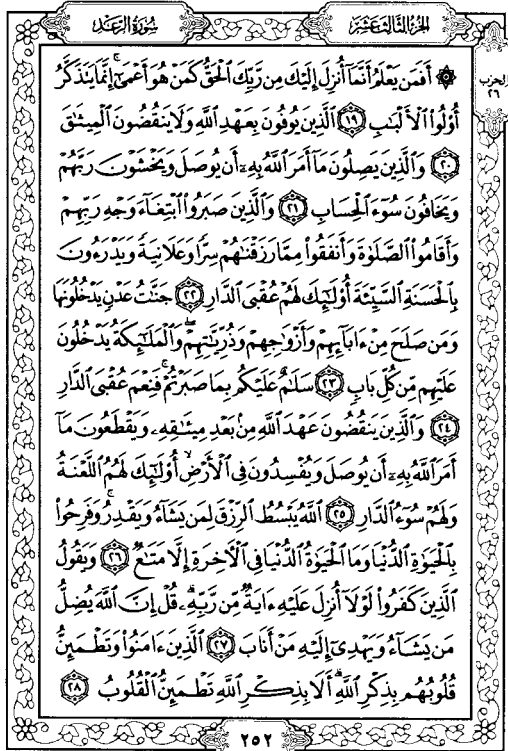 سُورَةُ الرَّعْدِ
الجُزْءُ الثَّالِثَ عَشَرَ
الحزب
٢٦
۞ أَفَمَن يَعْلَمُ أَنَّمَآ أُنزِلَ إِلَيْكَ مِن رَّبِّكَ ٱلْحَقُّ كَمَنْ هُوَ أَعْمَىٰٓ ۚ إِنَّمَا يَتَذَكَّرُ
أُو۟لُوا۟ ٱلْأَلْبَـٰبِ ١٩ ٱلَّذِينَ يُوفُونَ بِعَهْدِ ٱللَّهِ وَلَا يَنقُضُونَ ٱلْمِيثَـٰقَ
٢٠ وَٱلَّذِينَ يَصِلُونَ مَآ أَمَرَ ٱللَّهُ بِهِۦٓ أَن يُوصَلَ وَيَخْشَوْنَ رَبَّهُمْ
وَيَخَافُونَ سُوٓءَ ٱلْحِسَابِ ٢١ وَٱلَّذِينَ صَبَرُوا۟ ٱبْتِغَآءَ وَجْهِ رَبِّهِمْ
وَأَقَامُوا۟ ٱلصَّلَوٰةَ وَأَنفَقُوا۟ مِمَّا رَزَقْنَـٰهُمْ سِرًّا وَعَلَانِيَةً وَيَدْرَءُونَ
بِٱلْحَسَنَةِ ٱلسَّيِّئَةَ أُو۟لَـٰٓئِكَ لَهُمْ عُقْبَى ٱلدَّارِ ٢٢ جَنَّـٰتُ عَدْنٍ يَدْخُلُونَهَا
وَمَن صَلَحَ مِنْ ءَابَآئِهِمْ وَأَزْوَٰجِهِمْ وَذُرِّيَّـٰتِهِمْ ۖ وَٱلْمَلَـٰٓئِكَةُ يَدْخُلُونَ
عَلَيْهِم مِّن كُلِّ بَابٍ ٢٣ سَلَـٰمٌ عَلَيْكُم بِمَا صَبَرْتُمْ ۚ فَنِعْمَ عُقْبَى ٱلدَّارِ
٢٤ وَٱلَّذِينَ يَنقُضُونَ عَهْدَ ٱللَّهِ مِنۢ بَعْدِ مِيثَـٰقِهِۦ وَيَقْطَعُونَ مَآ
أَمَرَ ٱللَّهُ بِهِۦٓ أَن يُوصَلَ وَيُفْسِدُونَ فِى ٱلْأَرْضِ ۙ أُو۟لَـٰٓئِكَ لَهُمُ ٱللَّعْنَةُ
وَلَهُمْ سُوٓءُ ٱلدَّارِ ٢٥ ٱللَّهُ يَبْسُطُ ٱلرِّزْقَ لِمَن يَشَآءُ وَيَقْدِرُ ۚ وَفَرِحُوا۟
بِٱلْحَيَوٰةِ ٱلدُّنْيَا وَمَا ٱلْحَيَوٰةُ ٱلدُّنْيَا فِى ٱلْـَٔاخِرَةِ إِلَّا مَتَـٰعٌ ٢٦ وَيَقُولُ
ٱلَّذِينَ كَفَرُوا۟ لَوْلَآ أُنزِلَ عَلَيْهِ ءَايَةٌ مِّن رَّبِّهِۦ ۗ قُلْ إِنَّ ٱللَّهَ يُضِلُّ
مَن يَشَآءُ وَيَهْدِىٓ إِلَيْهِ مَنْ أَنَابَ ٢٧ ٱلَّذِينَ ءَامَنُوا۟ وَتَطْمَئِنُّ
قُلُوبُهُم بِذِكْرِ ٱللَّهِ ۗ أَلَا بِذِكْرِ ٱللَّهِ تَطْمَئِنُّ ٱلْقُلُوبُ ٢٨
٢٥٢